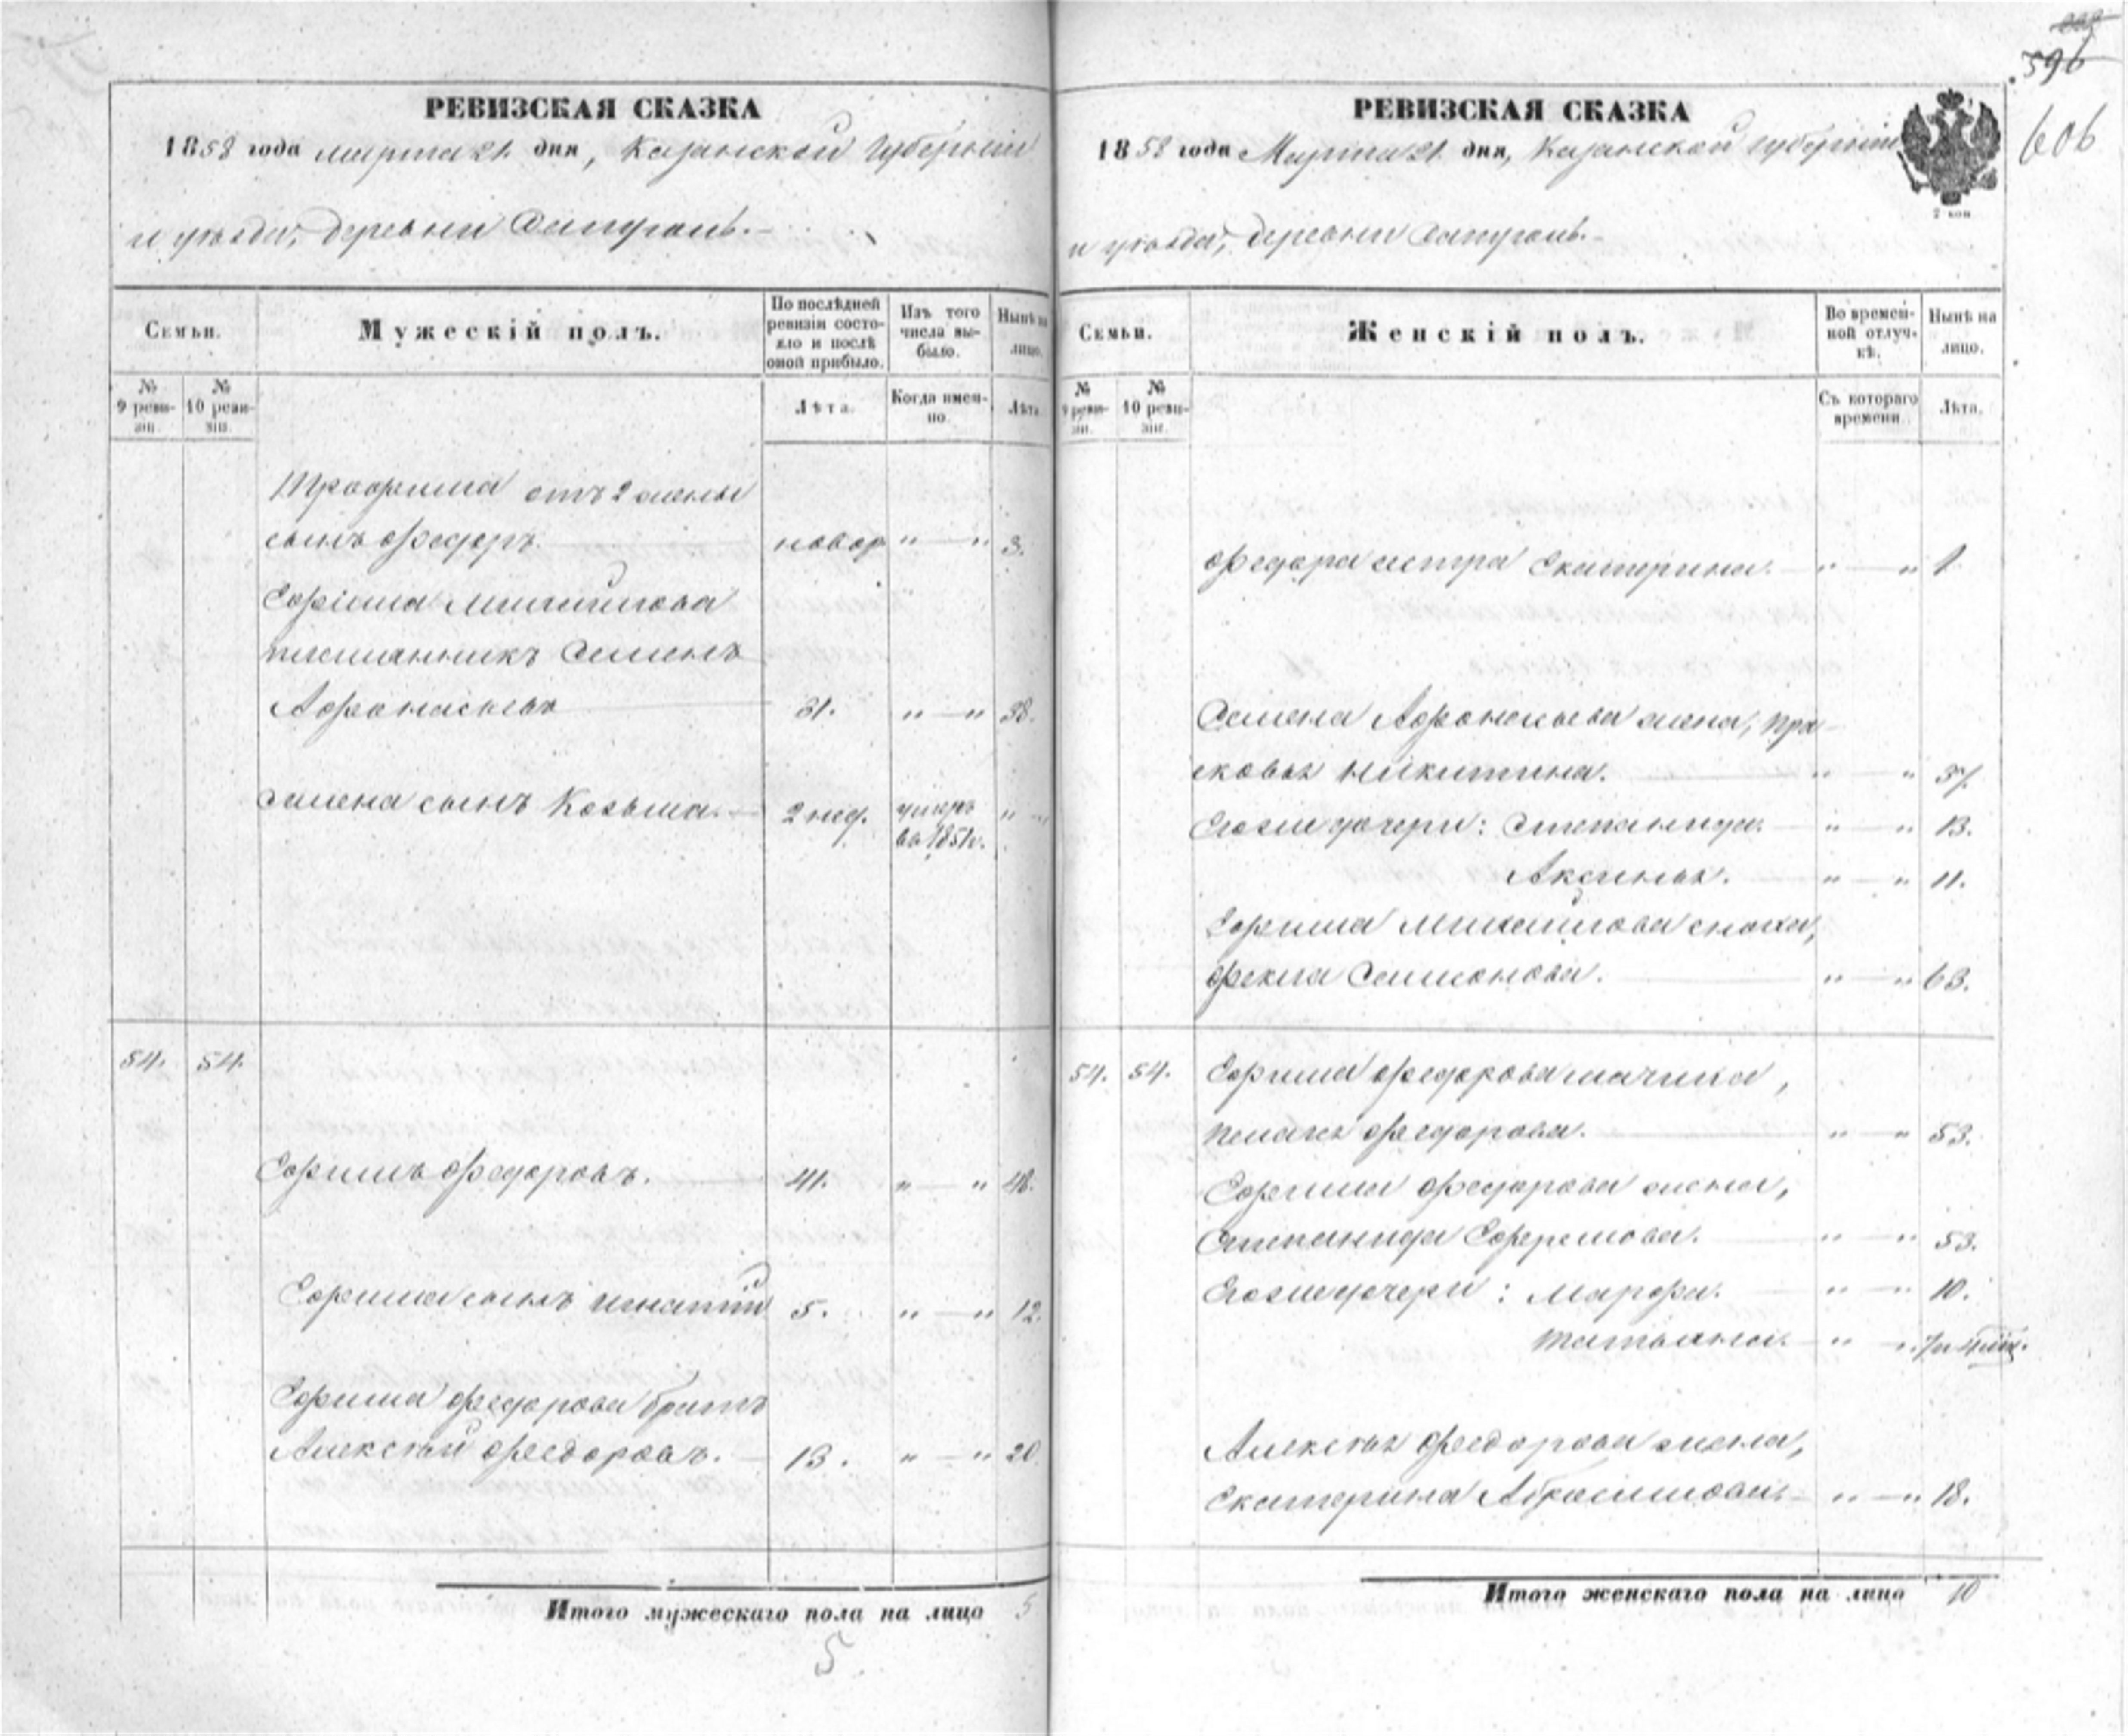 РЕВИЗСКАЯ СКАЗКА
1858 года Марта 21 дня, Казанской Губерніи
и уѣзда, деревни
Семьи.
Мужескій полъ.
По послѣдней ревизіи состояло и послѣ оной прибыло.
Изъ того числа выбыло.
Нынѣ на лицо.
№ 9 ревизіи.
№ 10 ревизіи.
Лѣта.
Когда именно.
Лѣта.
Трофима отъ 2 жены
сынъ Федоръ. новор " — " 3.
Ефима Михайлова
племянникъ Семенъ
Афонасьевъ 31. " — " 38.
Семена сынъ Козьма. — 2 нед. умеръ "
въ 1851 г.
54. 54.
Ефимъ Федоровъ. 41. " — " 48.
Ефима сынъ Игнатій 5. " — " 12.
Ефима Федорова братъ
Алексѣй Федоровъ. — 13. " — " 20.
Итого мужескаго пола на лицо 5
5
596
606
РЕВИЗСКАЯ СКАЗКА
1858 года Марта 21 дня, Казанской губерніи
2 коп
и уѣзда, деревни
Семьи.
Женскій полъ.
Во временной отлучкѣ.
Нынѣ на лицо.
№ 9 ревизіи.
№ 10 ревизіи.
Съ котораго времени.
Лѣта.
Федора сестра Екатерина. " — " 1
Семена Афонасьева жена, Пра-
сковья Никитина. " " 37.
Егоже дочери: Степанида. " — " 13.
Аксинья. " — " 11.
Ефима Михайлова сноха,
Фекла Семионова. " — " 63.
54. 54. Ефима Федорова мачиха,
Пелагея Федорова. " — " 53.
Ефима Федорова жена,
Степанида Ефремова. " — " 53.
Егоже дочери: Марфа. " — " 10.
Татьяна. " — "
Алексѣя Федорова жена,
Екатерина Абрасимова. — " — " 18.
Итого женскаго пола на лицо 10